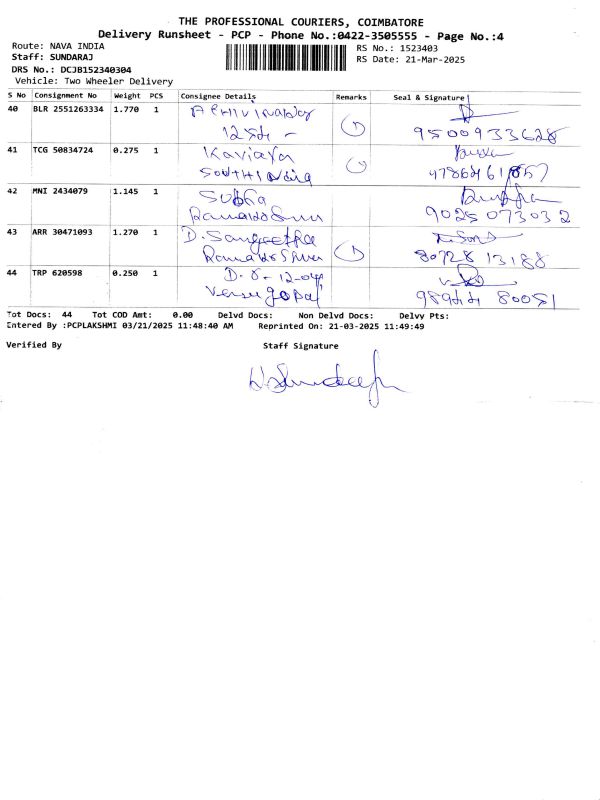 THE PROFESSIONAL COURIERS, COIMBATORE
Delivery Runsheet - PCP - Phone No.:0422-3505555 - Page No.:4
Route: NAVA INDIA
Staff: SUNDARAJ
DRS No.: DCJB152340304
Vehicle: Two Wheeler Delivery
RS No.: 1523403
RS Date: 21-Mar-2025
S No Consignment No Weight PCS Consignee Details Remarks Seal & Signature
40 BLR 2551263334 1.770 1
9500933628
41 TCG 50834724 0.275 1 Kaviaya
South India
42 MNI 2434079 1.145 1 Subha
9025073032
43 ARR 30471093 1.270 1 D. Sangeetha
80728 13188
44 TRP 620598 0.250 1
Venugopal
98944 80051
Tot Docs: 44 Tot COD Amt: 0.00 Delvd Docs: Non Delvd Docs: Delvy Pts:
Entered By :PCPLAKSHMI 03/21/2025 11:48:40 AM Reprinted On: 21-03-2025 11:49:49
Verified By Staff Signature